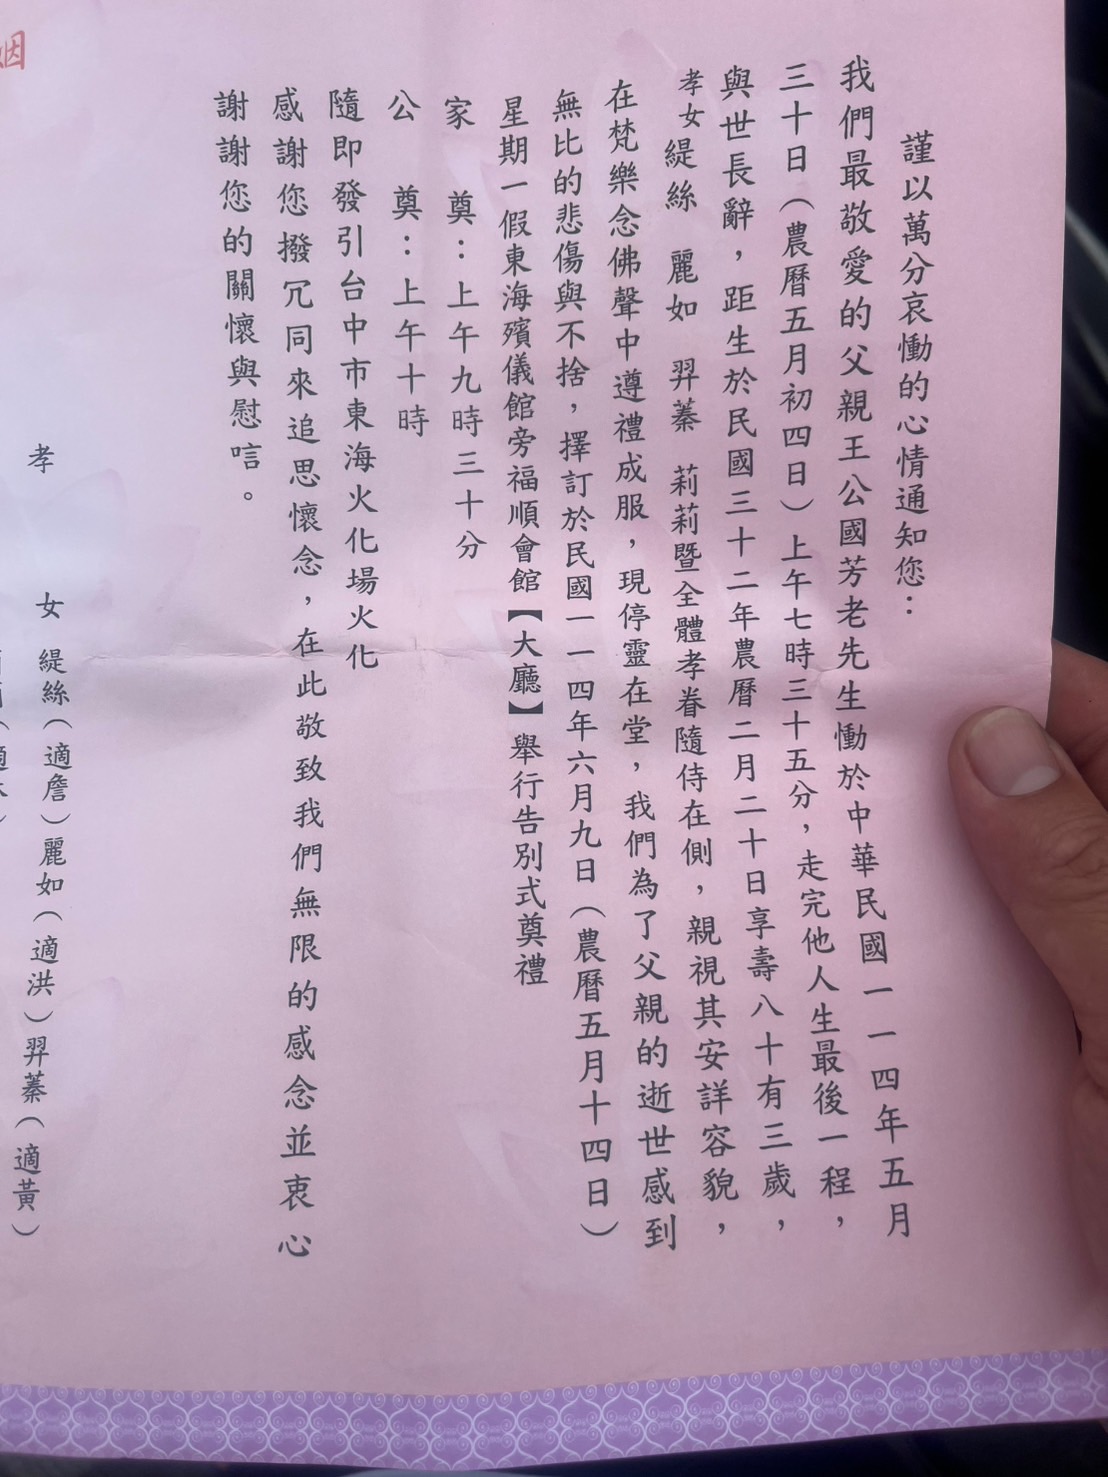 謹以萬分哀慟的心情通知您：
我們最敬愛的父親王公國芳老先生慟於中華民國一一四年五月
三十日（農曆五月初四日）上午七時三十五分，走完他人生最後一程，
與世長辭，距生於民國三十二年農曆二月二十日享壽八十有三歲，
孝女緹絲　麗如　羿蓁　莉莉暨全體孝眷隨侍在側，親視其安詳容貌，
在梵樂念佛聲中遵禮成服，現停靈在堂，我們為了父親的逝世感到
無比的悲傷與不捨，擇訂於民國一一四年六月九日（農曆五月十四日）
星期一假東海殯儀館旁福順會館【大廳】舉行告別式奠禮
家　奠：上午九時三十分
公　奠：上午十時
隨即發引台中市東海火化場火化
感謝您撥冗同來追思懷念，在此敬致我們無限的感念並衷心
謝謝您的關懷與慰唁。
孝　女　緹絲（適詹）麗如（適洪）羿蓁（適黃）
姻